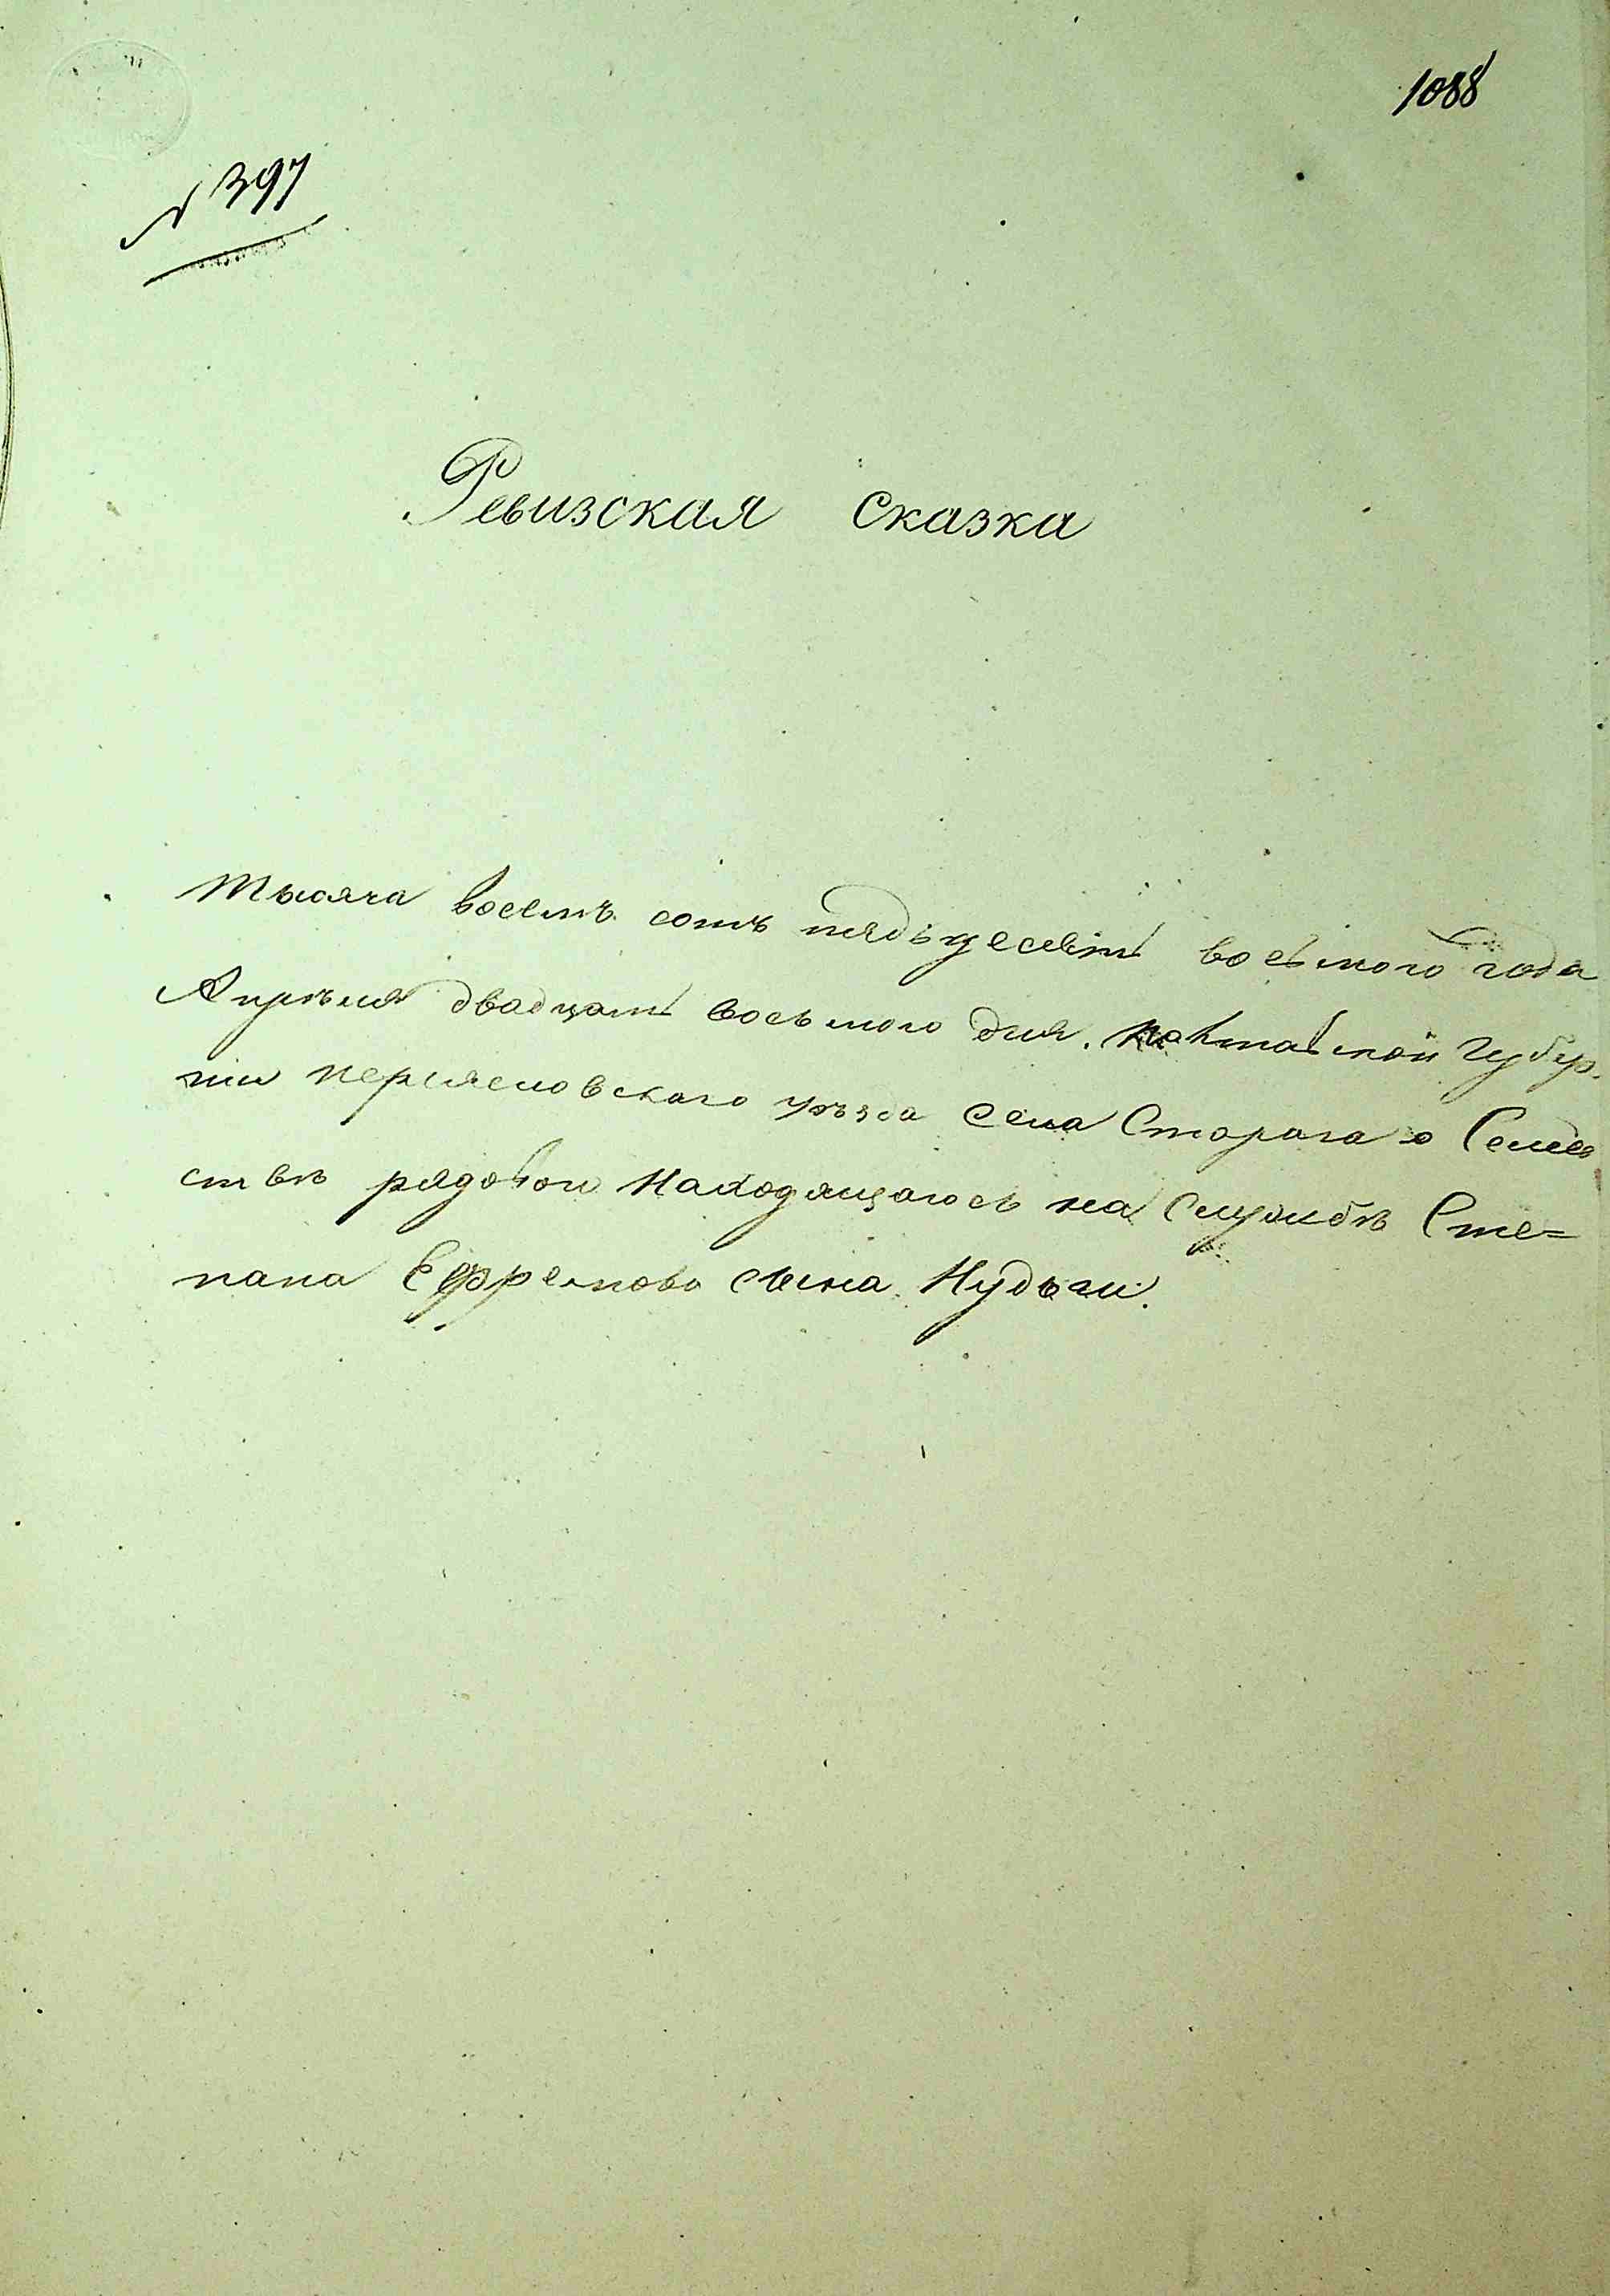 1088
№ 397
Ревизская сказка
Тысяча восемъ сотъ пядьдесятъ восьмого года
Апрѣля двадцать восьмого дня. Полтавской Губер.
нии переясловскаго уѣзда села Старого о Семей
ствѣ рядовои находящагось на службѣ Сте=
пана Ефремова сына Нудьги.